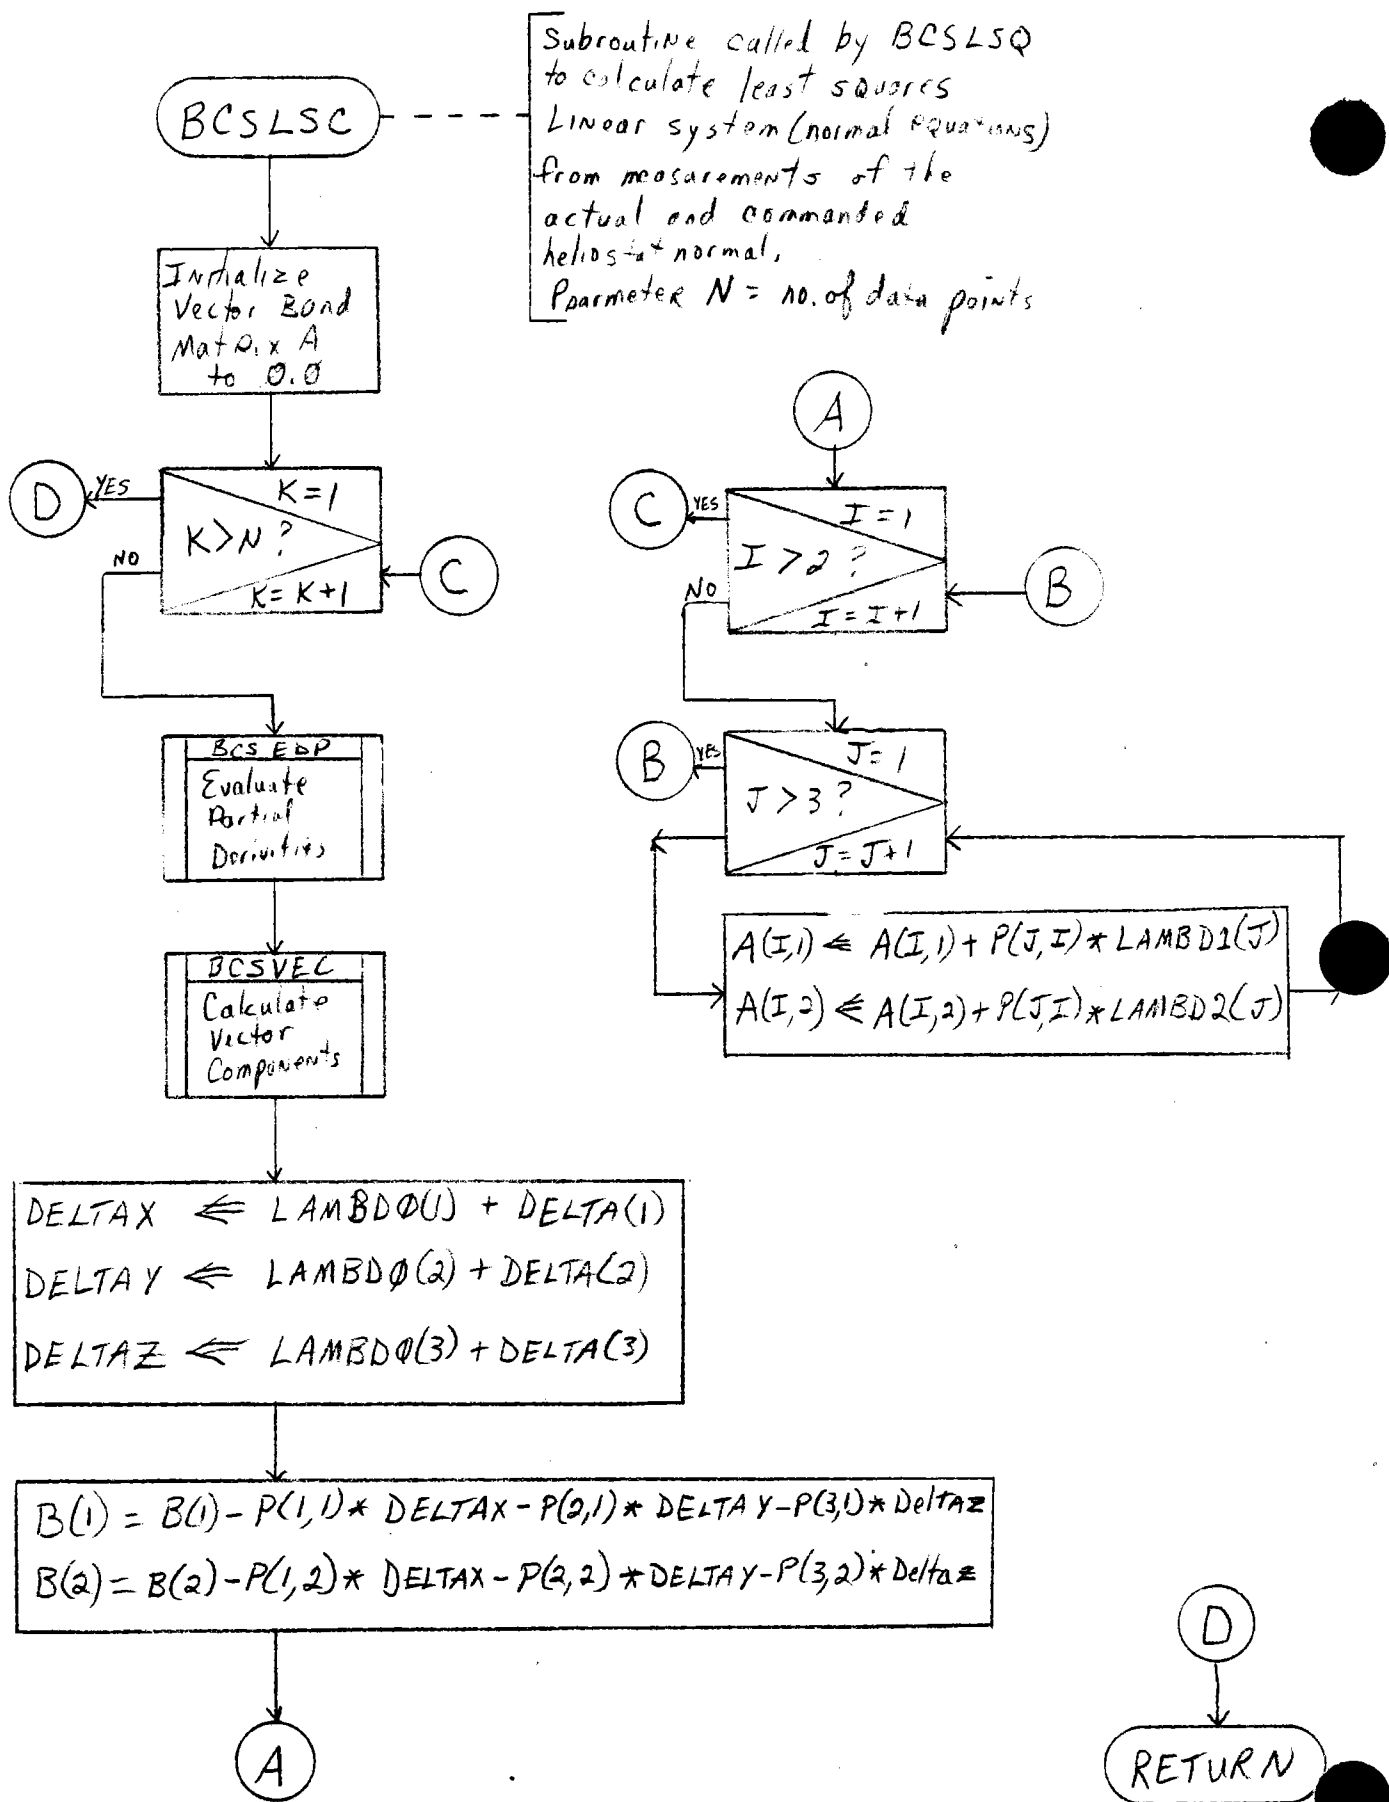 BCSLSC
Subroutine called by BCSLSQ
to calculate least squares
Linear system (normal equations)
from measurements of the
actual and commanded
heliostat normal,
Paarmeter N = no. of data points
Initialize
Vector Band
Matrix A
to 0.0
D
YES
K=1
K>N?
NO
K=K+1
C
BCSEDP
Evaluate
Partial
Derivitives
BCSVEC
Calculate
Vector
Components
DELTAX ⇐ LAMBDØ(1) + DELTA(1)
DELTAY ⇐ LAMBDØ(2) + DELTA(2)
DELTAZ ⇐ LAMBDØ(3) + DELTA(3)
B(1) = B(1) - P(1,1) * DELTAX - P(2,1) * DELTAY - P(3,1) * DeltaZ
B(2) = B(2) - P(1,2) * DELTAX - P(2,2) * DELTAY - P(3,2) * Deltaz
A
A
C
YES
I=1
I>2?
NO
I=I+1
B
B
YES
J=1
J>3?
J=J+1
A(I,1) ⇐ A(I,1) + P(J,I) * LAMBD1(J)
A(I,2) ⇐ A(I,2) + P(J,I) * LAMBD2(J)
D
RETURN